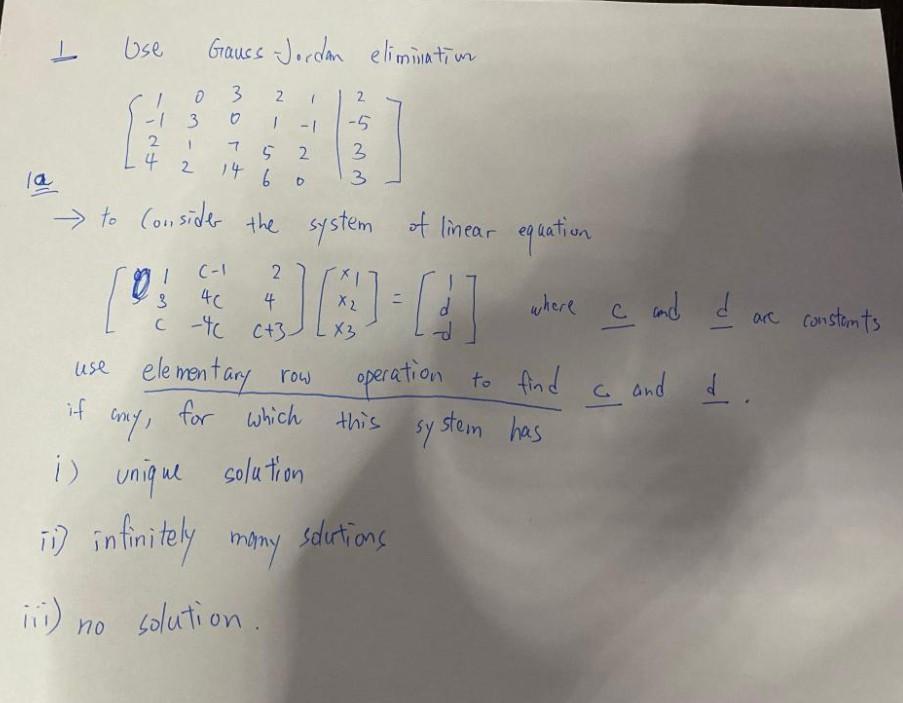 1 Use Gauss-Jordan elimination
1 0 3 2 1 | 2
-1 3 0 1 -1 | -5
2 1 7 5 2 | 3
4 2 14 6 0 | 3
1a
→ to Consider the system of linear equation
1 c-1 2 x1 1
3 4c 4 x2 = d where c and d are constants
c -4c c+3 x3 -d
use elementary row operation to find c and d.
if any, for which this system has
i) unique solution
ii) infinitely many solutions
iii) no solution.